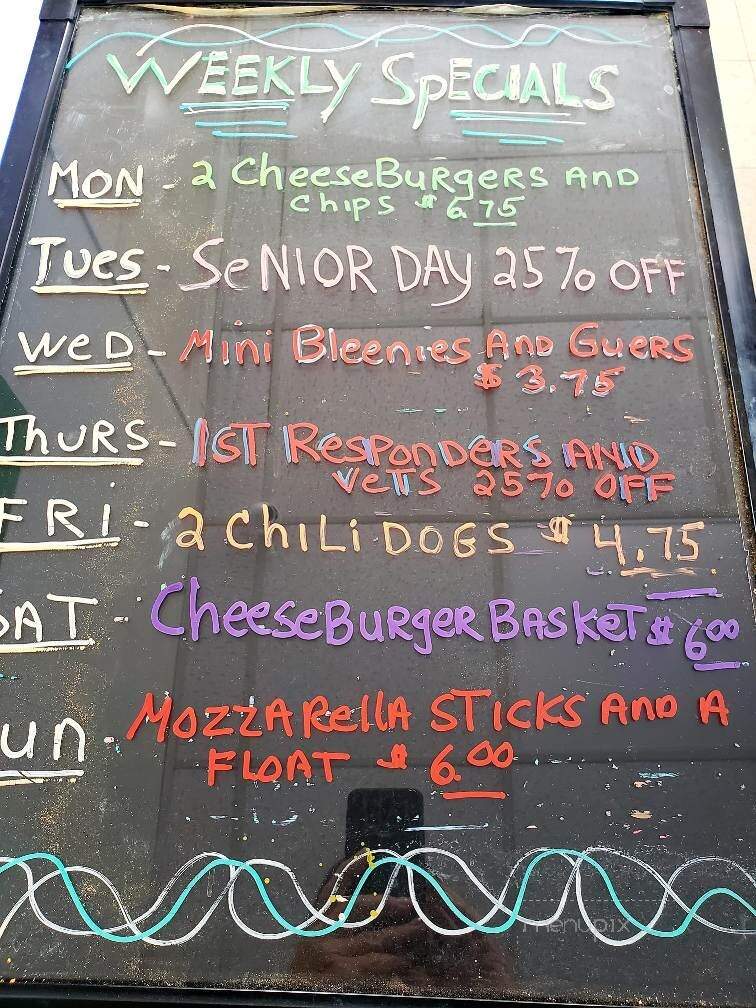 WEEKLY SPECIALS
MON - 2 CheeseBURgeRS AND
ChIPS $6.75
TUes - SeNIOR DAY 25% OFF
WeD - Mini Bleenies AND GUERS
$3.75
ThURS - 1ST ResPonDeRS AND
VeTS 25% OFF
FRI - 2 ChiLi DOGS $4.75
SAT - CheeseBURgeR BASKeT $6.00
un - MOZZARellA STICKS AND A
FLOAT $6.00
menupix